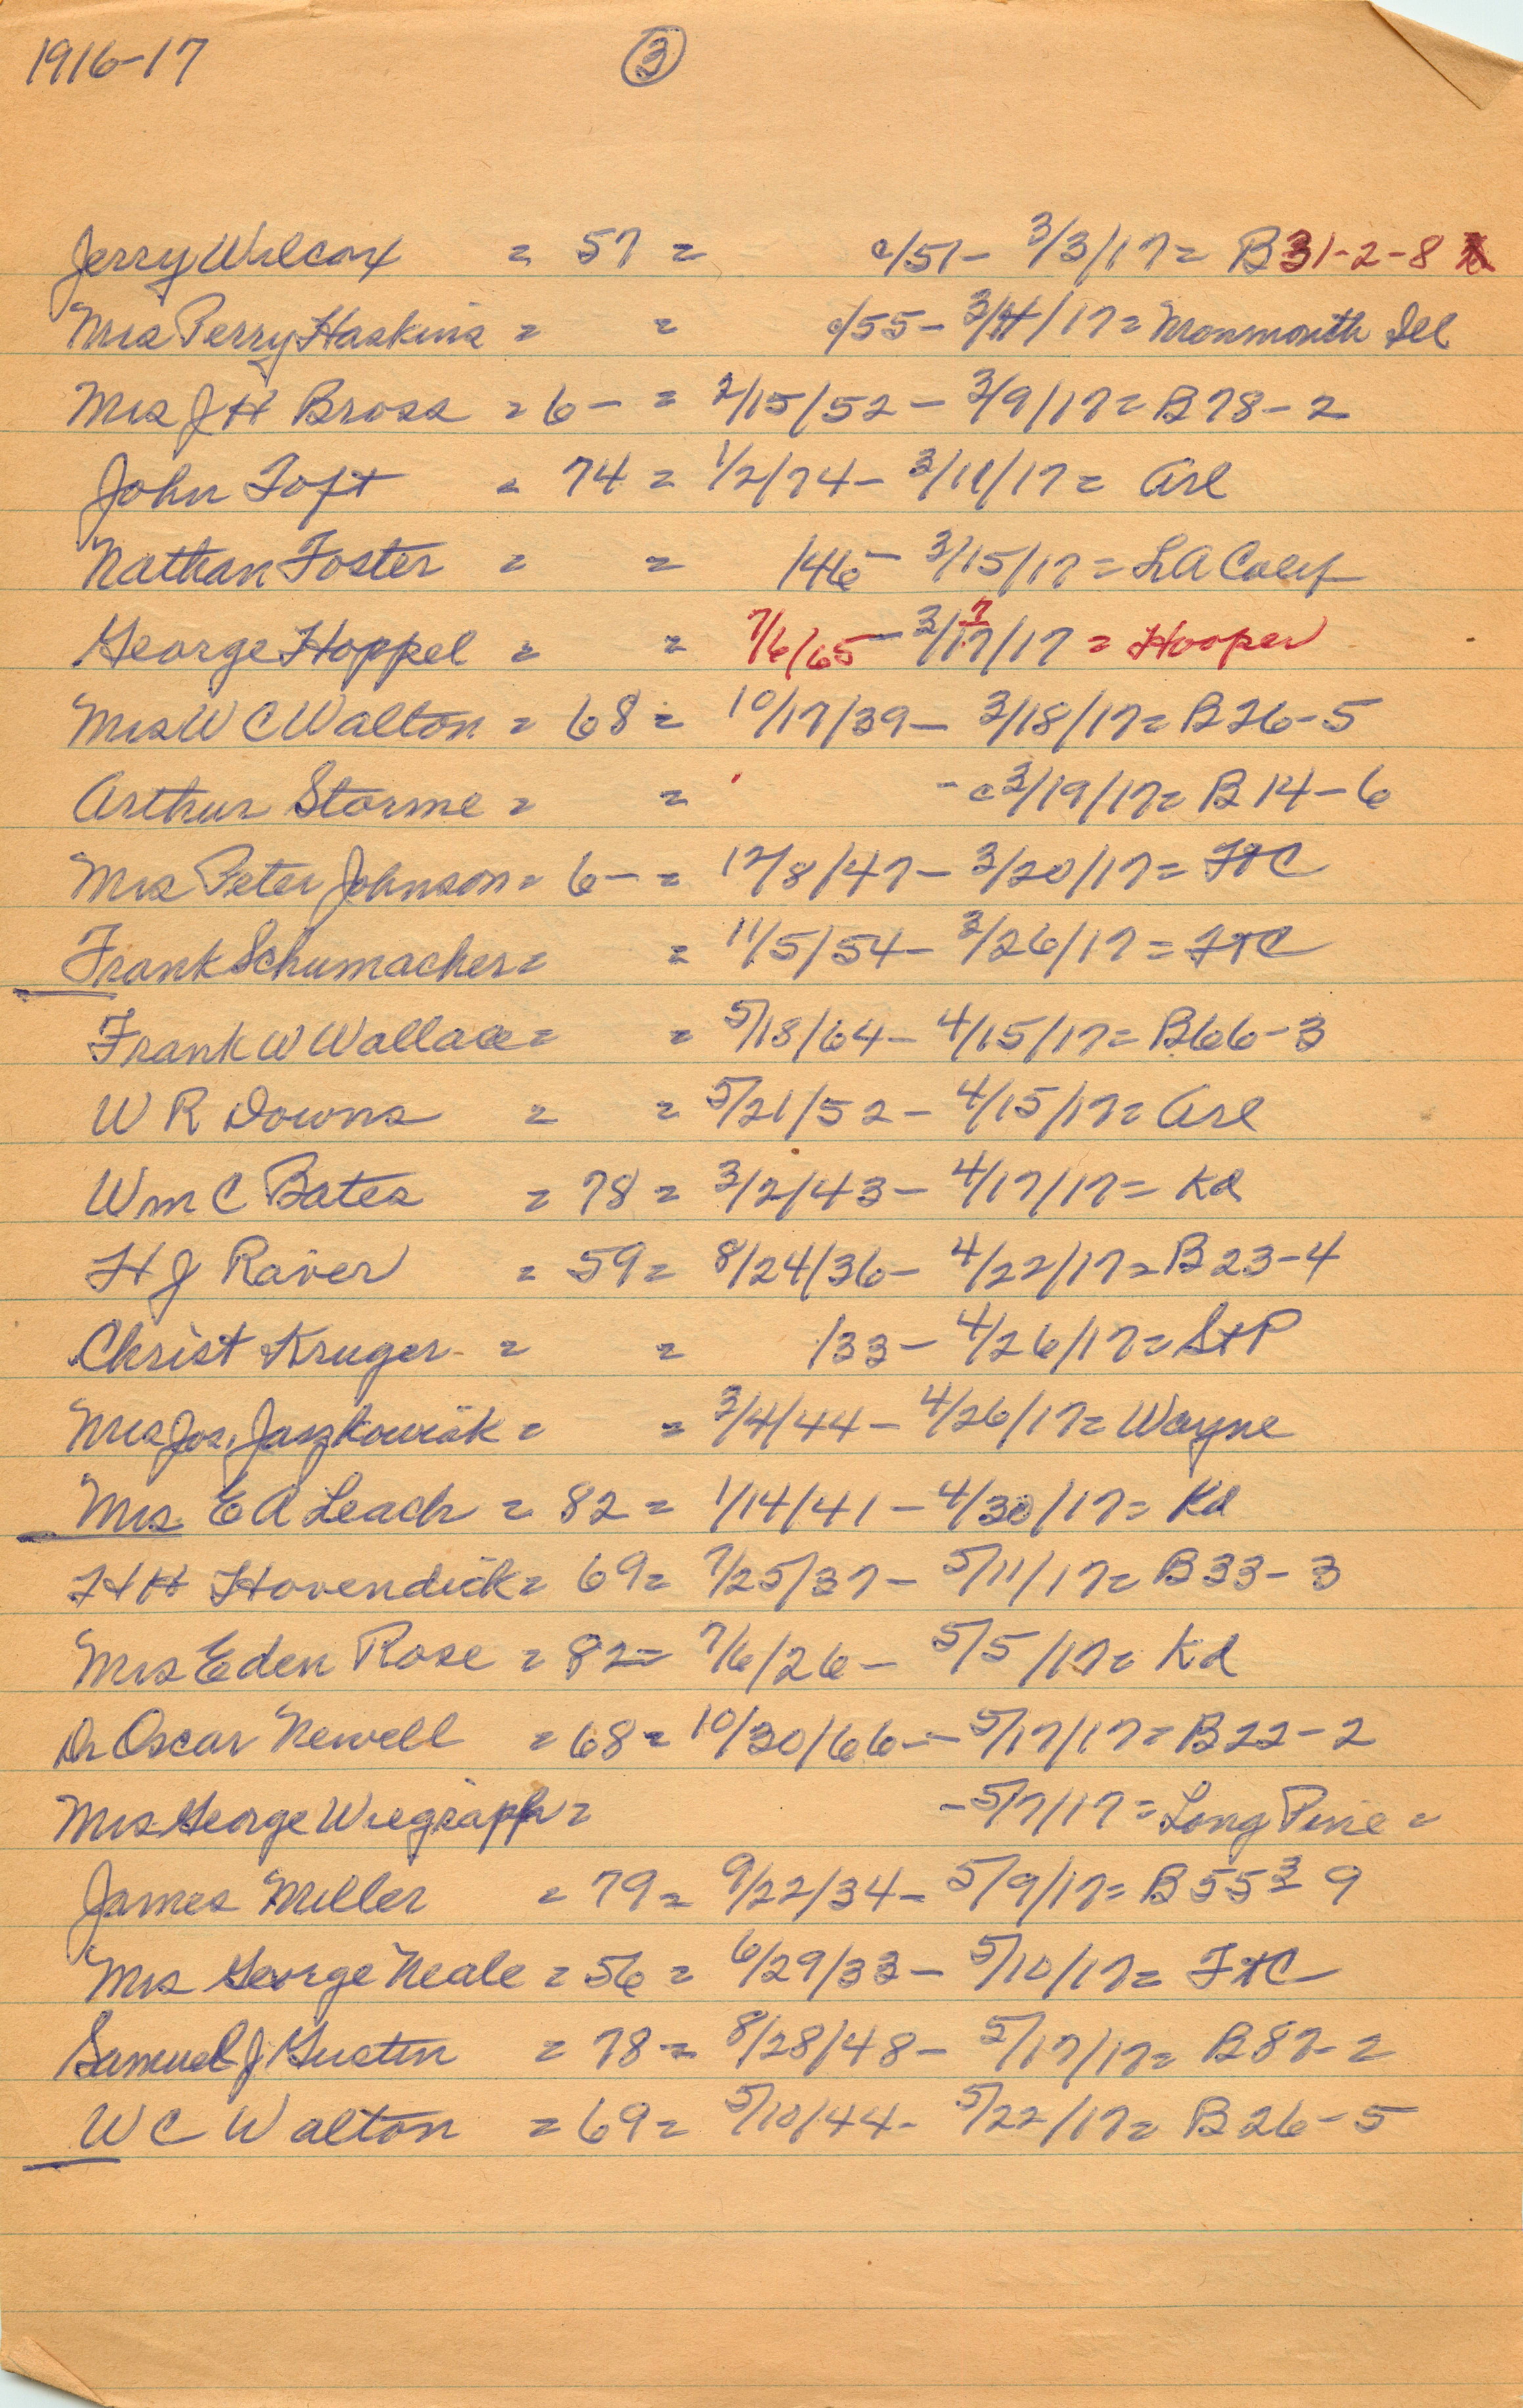 1916-17 ③
Jerry Wilcox = 57 = c/51- 3/3/17= B31-2-8
Mrs Perry Haskins = = c/55- 3/4/17= Monmouth Ill
Mrs J H Bross = 6- = 2/15/52- 3/9/17= B78-2
John Toft = 74 = 1/2/74- 3/11/17= Arl
Nathan Foster = = /46- 3/15/17= LA Calif
George Hoppel = = 7/6/65- 3/17/17 = Hooper
Mrs W C Walton = 68 = 10/17/39- 3/18/17= B26-5
Arthur Storme = = - c3/19/17= B14-6
Mrs Peter Johnson = 6- = 12/8/47- 3/20/17= FtC
Frank Schumacher= = 11/5/54- 3/26/17= FtC
Frank W Wallace= = 5/18/64- 4/15/17= B66-3
W R Downs = = 5/21/52- 4/15/17= Arl
Wm C Bates = 78 = 3/2/43- 4/17/17= Kd
H J Raver = 59 = 8/24/36- 4/22/17= B23-4
Christ Kruger = = /33- 4/26/17= StP
Mrs Jos. Jaszkowiak = = 3/4/44- 4/26/17= Wayne
Mrs E A Leach = 82 = 1/14/41- 4/30/17= Kd
H H Hovendick= 69= 7/25/37- 5/11/17= B33-3
Mrs Eden Rose = 82= 7/6/26- 5/5/17= Kd
Dr Oscar Newell = 68= 10/30/66- 5/17/17= B22-2
Mrs George Wiegraph= - 5/7/17= Long Pine =
James Miller = 79= 9/22/34- 5/9/17= B55 3- 9
Mrs George Neale = 56 = 6/29/33- 5/10/17= FtC
Samuel J Gustin = 78= 8/28/48- 5/17/17= B87-2
W C Walton = 69= 5/10/44- 5/22/17= B26-5